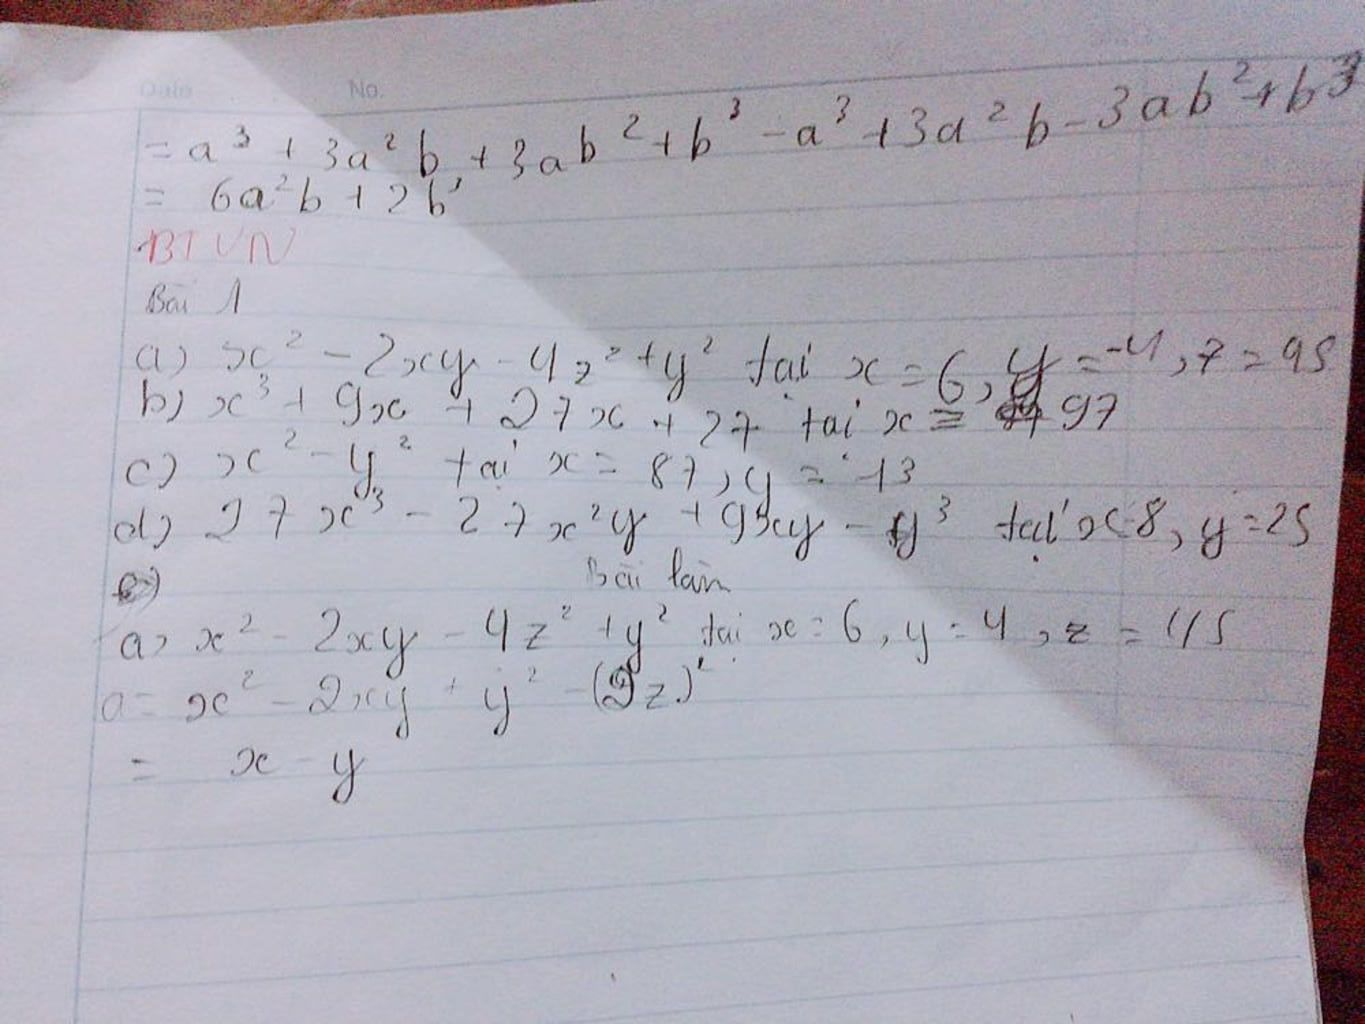 Date No.
= a³ + 3a²b + 3ab² + b³ - a³ + 3a²b - 3ab² + b³
= 6a²b + 2b³
BTVN
Bài 1
a) x² - 2xy - 4z² + y² tại x = 6, y = -4, z = 45
b) x³ + 9x + 27x + 27 tại x = 97
c) x² - y² tại x = 87, y = 13
d) 27x³ - 27x²y + 9xy - y³ tại x=8, y=25
e)
Bài làm
a) x² - 2xy - 4z² + y² tại x = 6, y = 4, z = 45
a = x² - 2xy + y² - (2z)²
= x - y